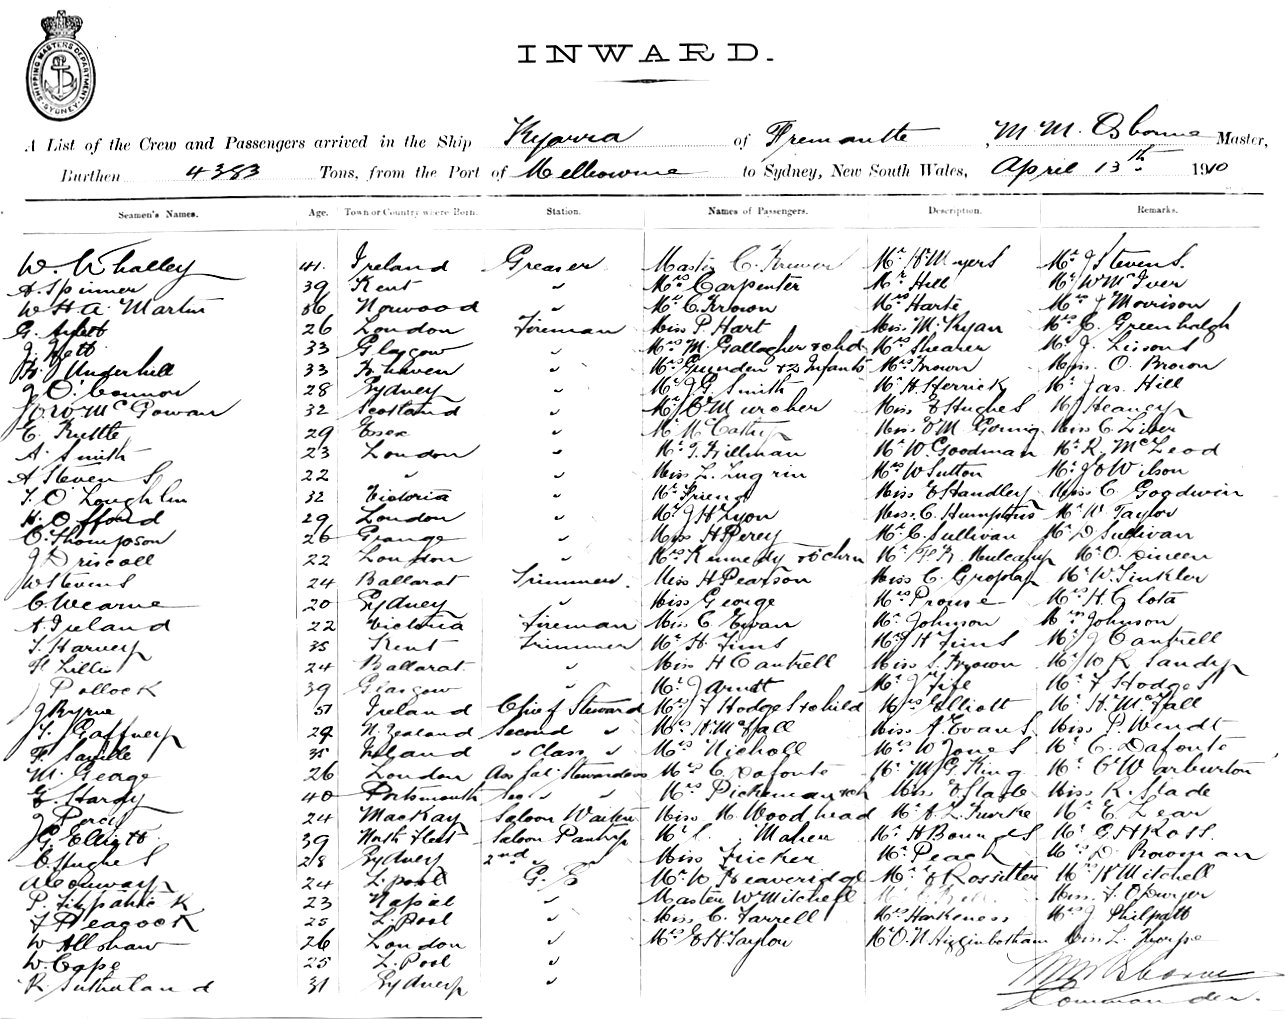 SHIPPING MASTERS DEPARTMENT SYDNEY
INWARD.
A List of the Crew and Passengers arrived in the Ship Kyarra of Fremantle, M. M. Osborne Master,
Burthen 4383 Tons, from the Port of Melbourne to Sydney, New South Wales, April 13th 1910
Seamen's Names. Age. Town or Country where Born. Station. Names of Passengers. Description. Remarks.
W. Whalley 41. Ireland Greaser Master C. Brewer Mr H Meyers Mr J Stevens.
A. Spinner 39 Kent " Mrs Carpenter Mr Hill Mr W McIver
W H A Martin 36 Norwood " Mr C. Brown Mrs Harte Mrs J Morrison
G. 26 London Fireman Miss P. Hart Miss M. Ryan Mrs C. Greenhalgh
J. Kett 33 Glasgow " Mrs M. Gallagher & chd Mrs Shearer Mr J. Lissons
Underhill 33 " Mrs & 2 Infants Mrs Brown Miss O. Brown
J O'Connor 28 Sydney " Mr J. G. Smith Mr H. Herrick Mr Jas. Hill
McGowan 32 Scotland " Mr Murcher Miss Hughes Mr J Heaney
C. Kuttle 29 Essex " Mr McCathy Miss Going Miss C. Liber
A. Smith 23 London " Mr J. Hillman Mr W. Goodman Mr R. McLeod
A Stevens 22 " " Miss L. Lugrin Mrs W Sutton Mr Wilson
T. O'Loughlin 32 Victoria " Mr Friend Miss Handley Miss C Goodwin
H. Offord 29 London " Mr J H Lyon Miss C. Humphris Mr W Taylor
C. Thompson 26 Grange " Miss H Perey Mr C. Sullivan Mr D Sullivan
J Driscoll 22 London " Mrs Kennedy & chrn Mr Metcalf Mr O. Dineen
W Stevens 24 Ballarat Trimmer. Miss H Pearson Miss C. Mr W. Tinkler
C. Wearne 20 Sydney " Miss George Mrs Prouse Mrs H. Clota
A. Ireland 22 Victoria Fireman Miss C Ewan Mr Johnson Mrs Johnson
T. Harvey 35 Kent Trimmer Mr H. Tims Mrs H Tims Mr J Cantrell
F. Lillis 24 Ballarat. " Miss H Cantrell Miss S. Brown Mr W R Sandy
J Pollock 39 Glasgow " Mr J Arndt Mr J Fife Mr F Hodges
J Byrne 51 Ireland Chief Steward Mrs F Hodges & child Mrs Elliott Mr H. McFall
T. Gaffney 29 N. Zealand Second " Mrs H. McFall Miss A. Evans Miss P. Wendt
F. Saville 35 Ireland " Class " Mrs Nicholl Mrs W Jones Mr C. Dafonte
M. George 26 London Ass Sal. Stewardess Mrs C Dafonte Mr M. G. King Mr Warburton
E. Hardy 40 Portsmouth " " Mrs Pickeman & ch Miss Slade Miss K. Slade
J Percy 24 Mackay Saloon Waiter Miss M. Woodhead Mr A. L. Burke Mr E. Lear
G. Elliott 39 North Fleet Saloon Pantry Mr C. Maher Mr H Bounds Mr E H Ross.
C Hughes 28 Sydney 2nd " Miss Fricker Mr Peach Mrs D. Bowman
A Conway 24 L. pool G. S Mr W Beaveridge Mr Rossitter Mr W Mitchell
P. Fitzpatrick 23 Napier " Master W Mitchell Miss F. O'Dwyer
F Peacock 25 L. Pool " Miss C. Farrell Mrs Harkeness Mrs J Philpott
W Allshaw 26 London " Mrs E H Taylor Mr O. N Higginbotham Miss L. Thorpe
W. Cape 25 L. Pool "
R. Sutherland 31 Sydney "
M M Osborne
Commander.